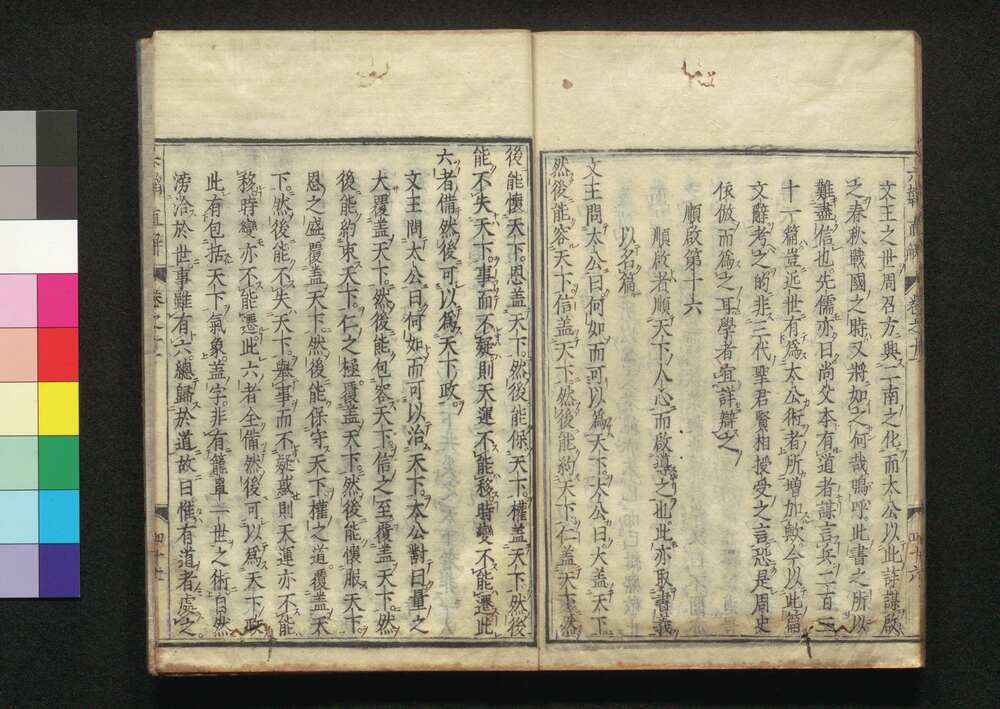 文王之世周召方興二南之化而太公以此詩謀啟
之春秋戰國之時又將如之何哉嗚呼此書之所以
難盡信也先儒亦曰尚父本有道者謀言兵二百三
十一篇豈近世有爲太公術者所增加歟今以此篇
文辭考之的非三代聖君賢相授受之言恐是周史
依倣而爲之耳學者宜詳辯之
順啟第十六
順啟者順天下人心而啟導之也此亦取書義
以名篇
文王問太公曰何如而可以爲天下太公曰大蓋天下
然後能容天下信蓋天下然後能約天下仁蓋天下然
後能懷天下恩蓋天下然後能保天下權蓋天下然後
能不失天下事而不疑則天運不能移時變不能遷此
六者備然後可以爲天下政
文王問太公曰何如而可以治天下太公對曰量之
大覆蓋天下然後能包容天下信之至覆蓋天下然
後能約束天下仁之極覆蓋天下然後能懷服天下
恩之盛覆蓋天下然後能保守天下權之道覆蓋天
下然後能不失天下與事而不疑惑則天運亦不能
移時變亦不能遷此六者全備然後可以爲天下政
此有包括天下氣象蓋字非有籠罩一世之術自然
滂洽於世事雖有六總歸於道故曰惟有道者處之